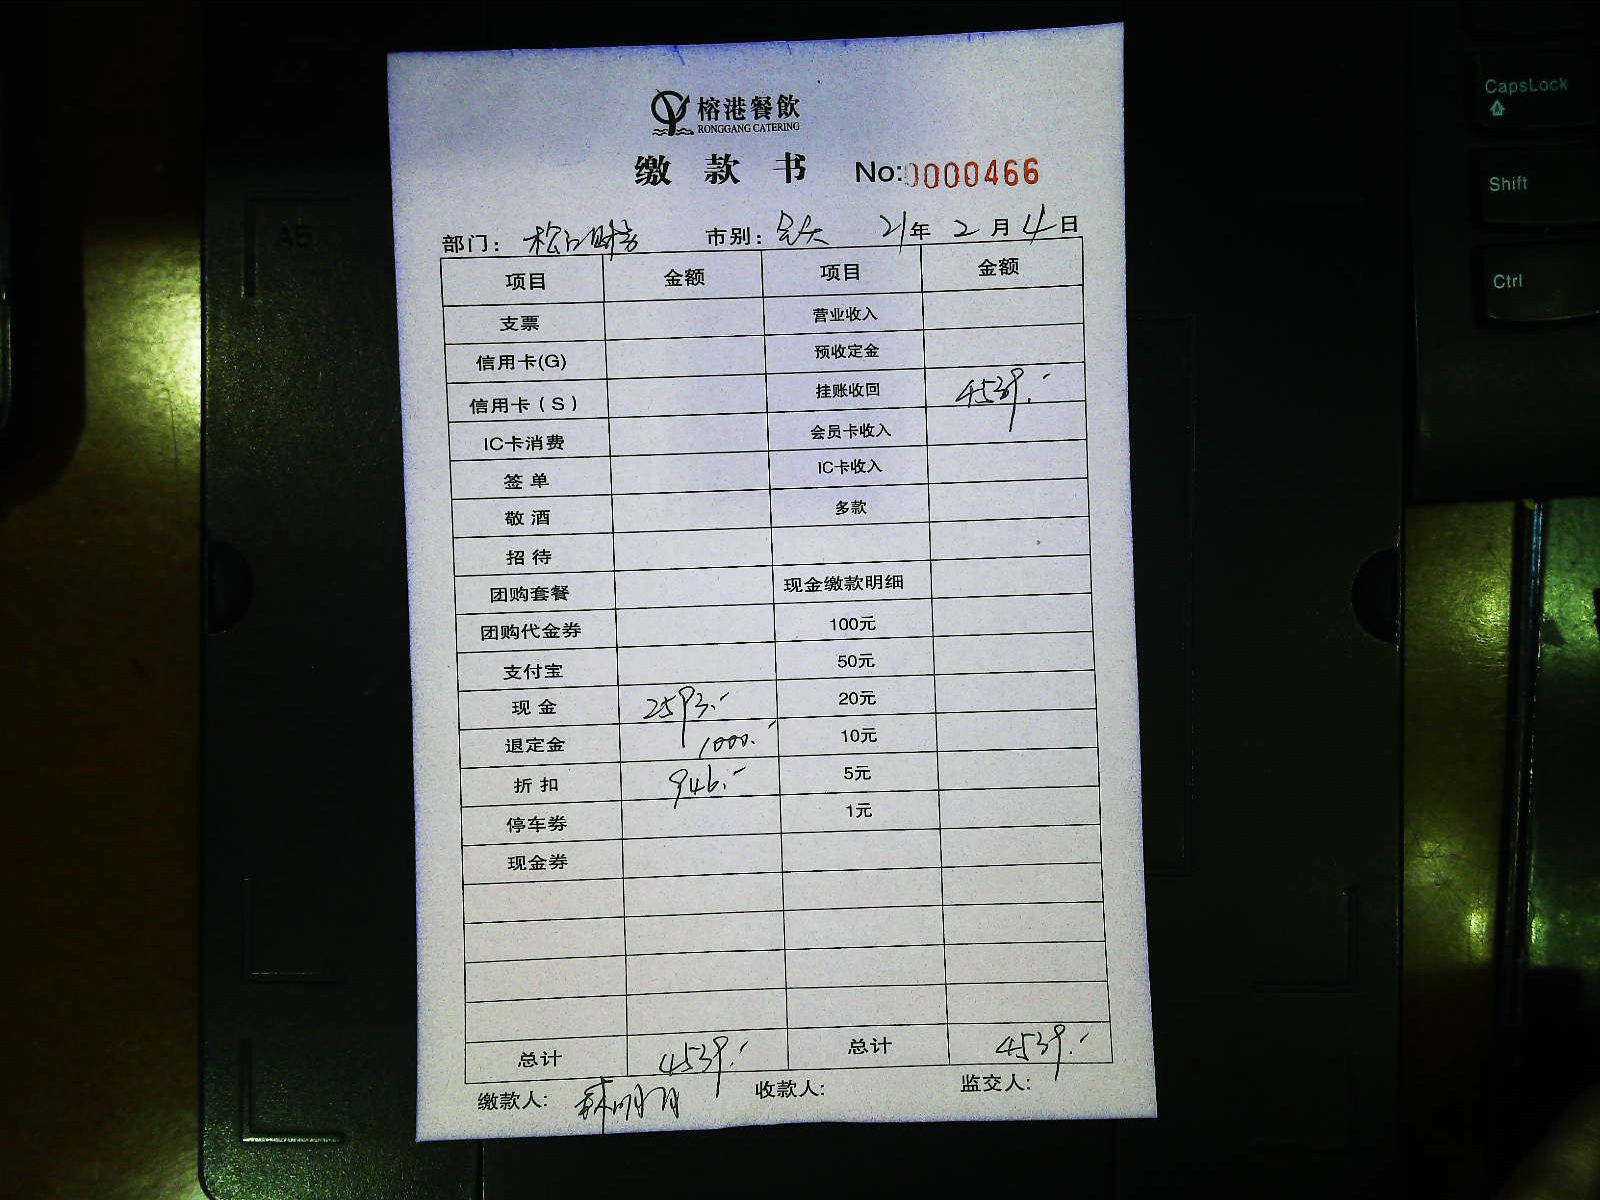 榕港餐飲
RONGGANG CATERING
缴 款 书 No:0000466
部门： 松江财务 市别：全天 21年 2 月 4 日
项目 金额 项目 金额
支票 营业收入
信用卡(G) 预收定金
信用卡（S） 挂账收回 4539.-
IC卡消费 会员卡收入
签 单 IC卡收入
敬 酒 多款
招 待
团购套餐 现金缴款明细
团购代金券 100元
支付宝 50元
现 金 2593.- 20元
退定金 1000.- 10元
折 扣 946.- 5元
停车券 1元
现金券
总计 4539.- 总计 4539.-
缴款人: 收款人: 监交人:
CapsLock
Shift
Ctrl
A5